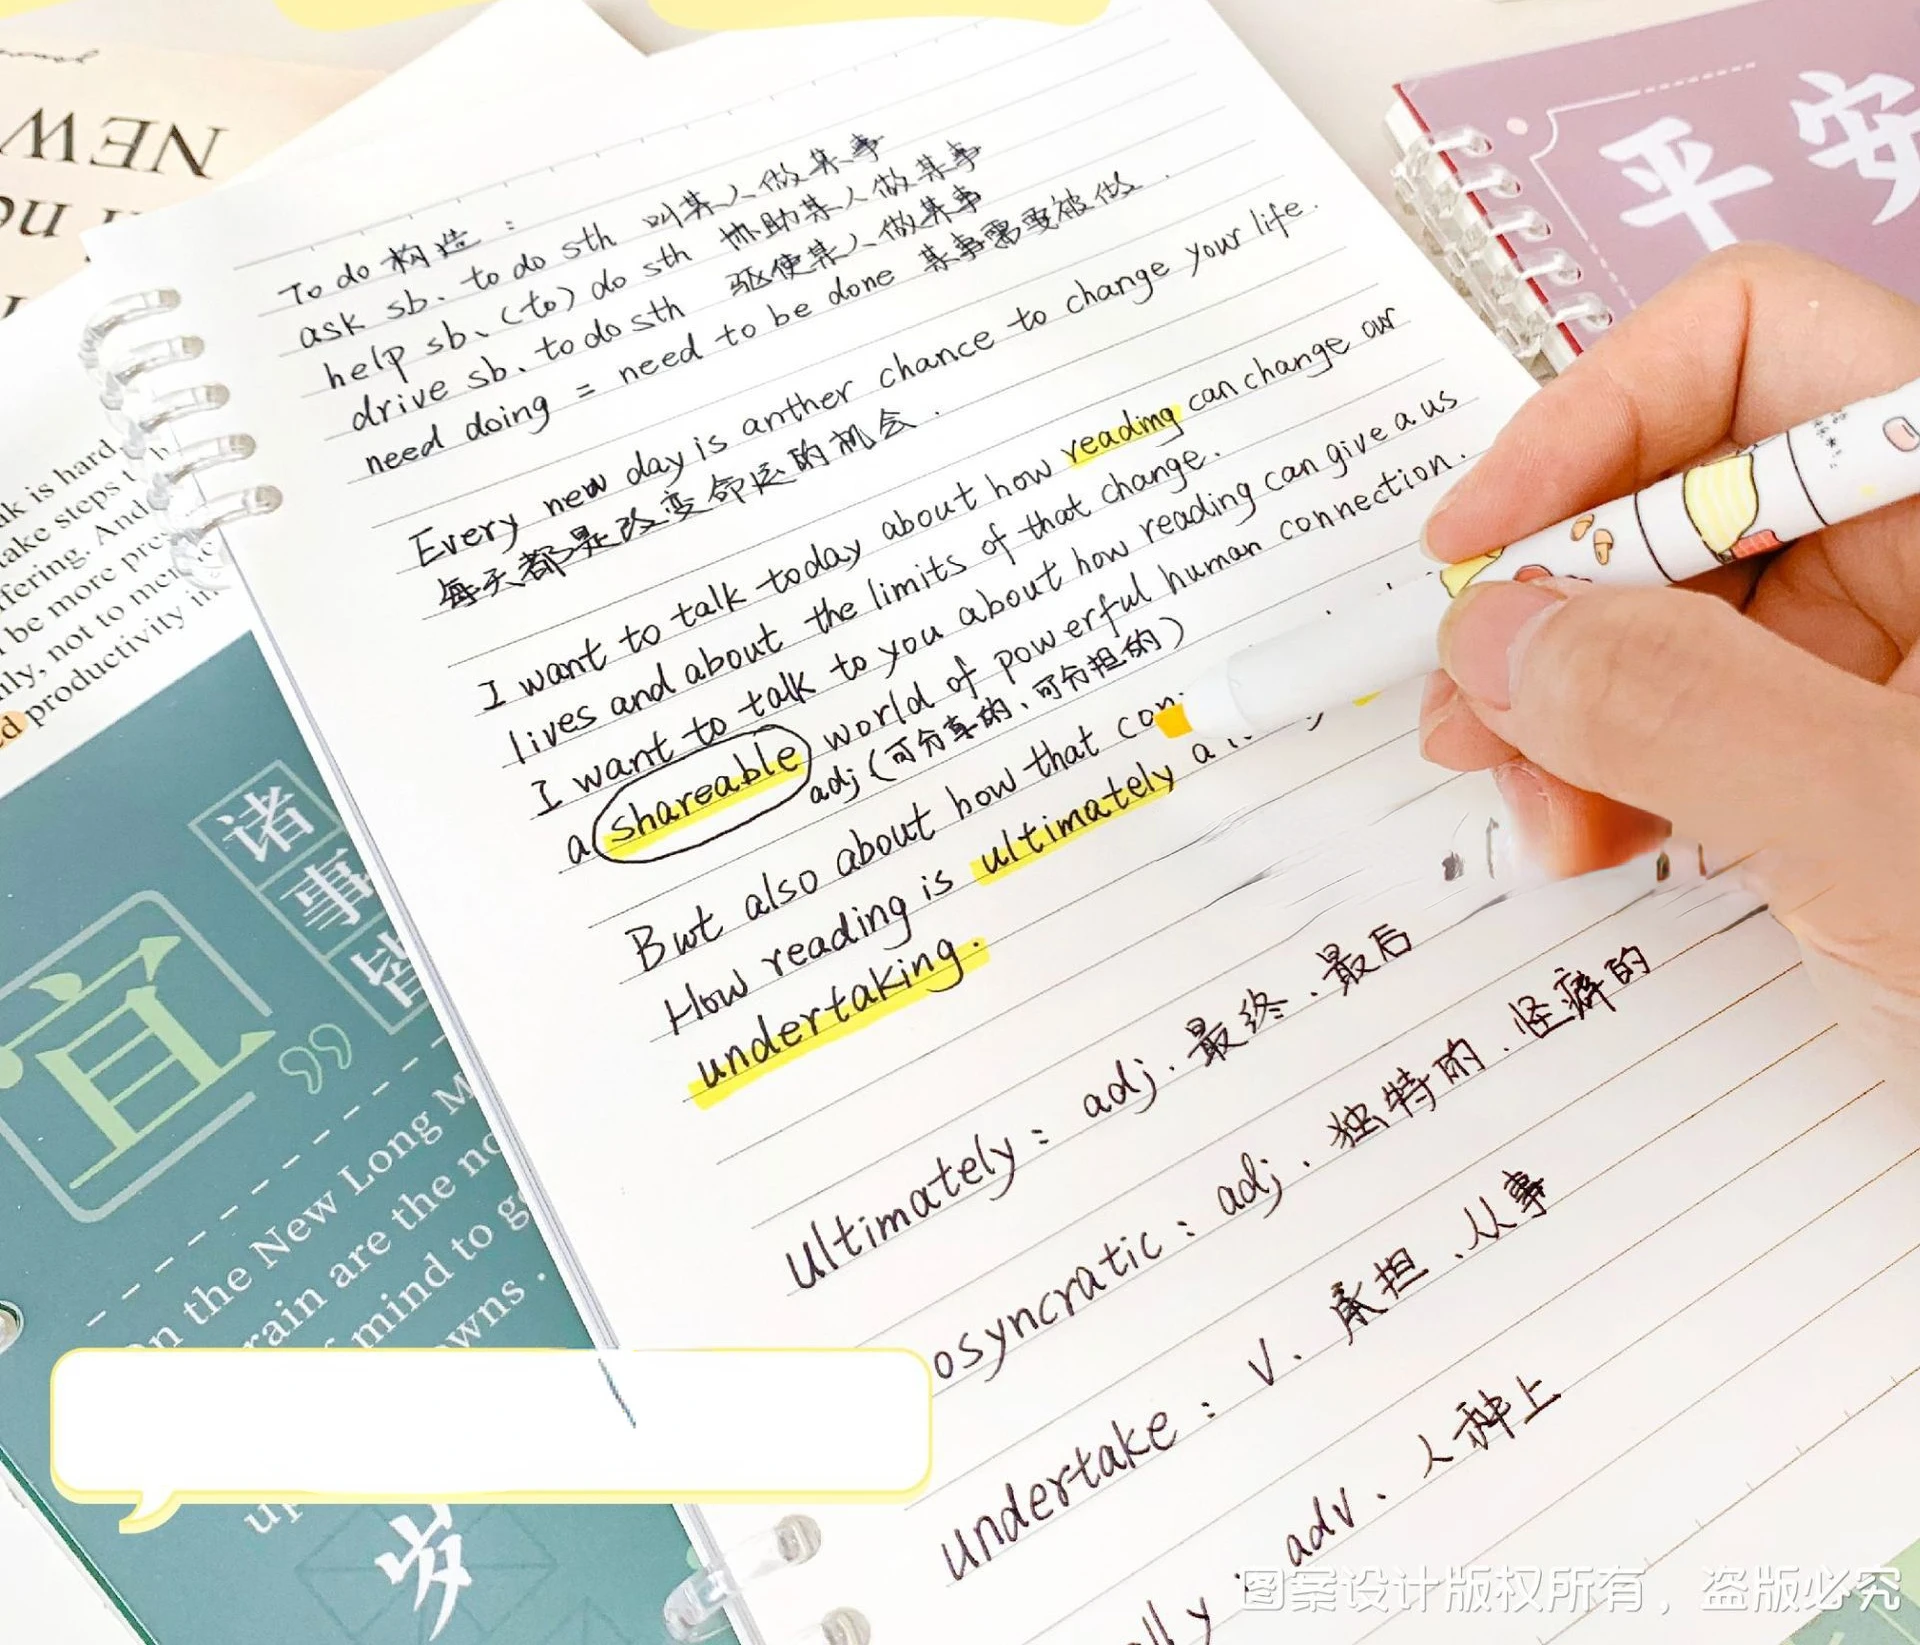 NEW
To do 构造：
ask sb. to do sth 叫某人做某事
help sb. (to) do sth 协助某人做某事
drive sb. to do sth 驱使某人做某事
need doing = need to be done 某事需要被做.
Every new day is anther chance to change your life.
每天都是改变命运的机会.
I want to talk today about how reading can change our
lives and about the limits of that change.
I want to talk to you about how reading can give a us
a shareable world of powerful human connection.
adj (可分享的、可分担的)
But also about how that con
How reading is ultimately a
undertaking.
ultimately: adj. 最终.最后
osyncratic: adj. 独特的.怪癖的
undertake: v. 承担.从事
adv. 人种上
lly
平安
is hard
take steps
ffering. And
be more pre
not to men
productivity in
诸事皆
宜
On the New Long M
rain are the no
mind to g
owns.
up
岁
图案设计版权所有，盗版必究